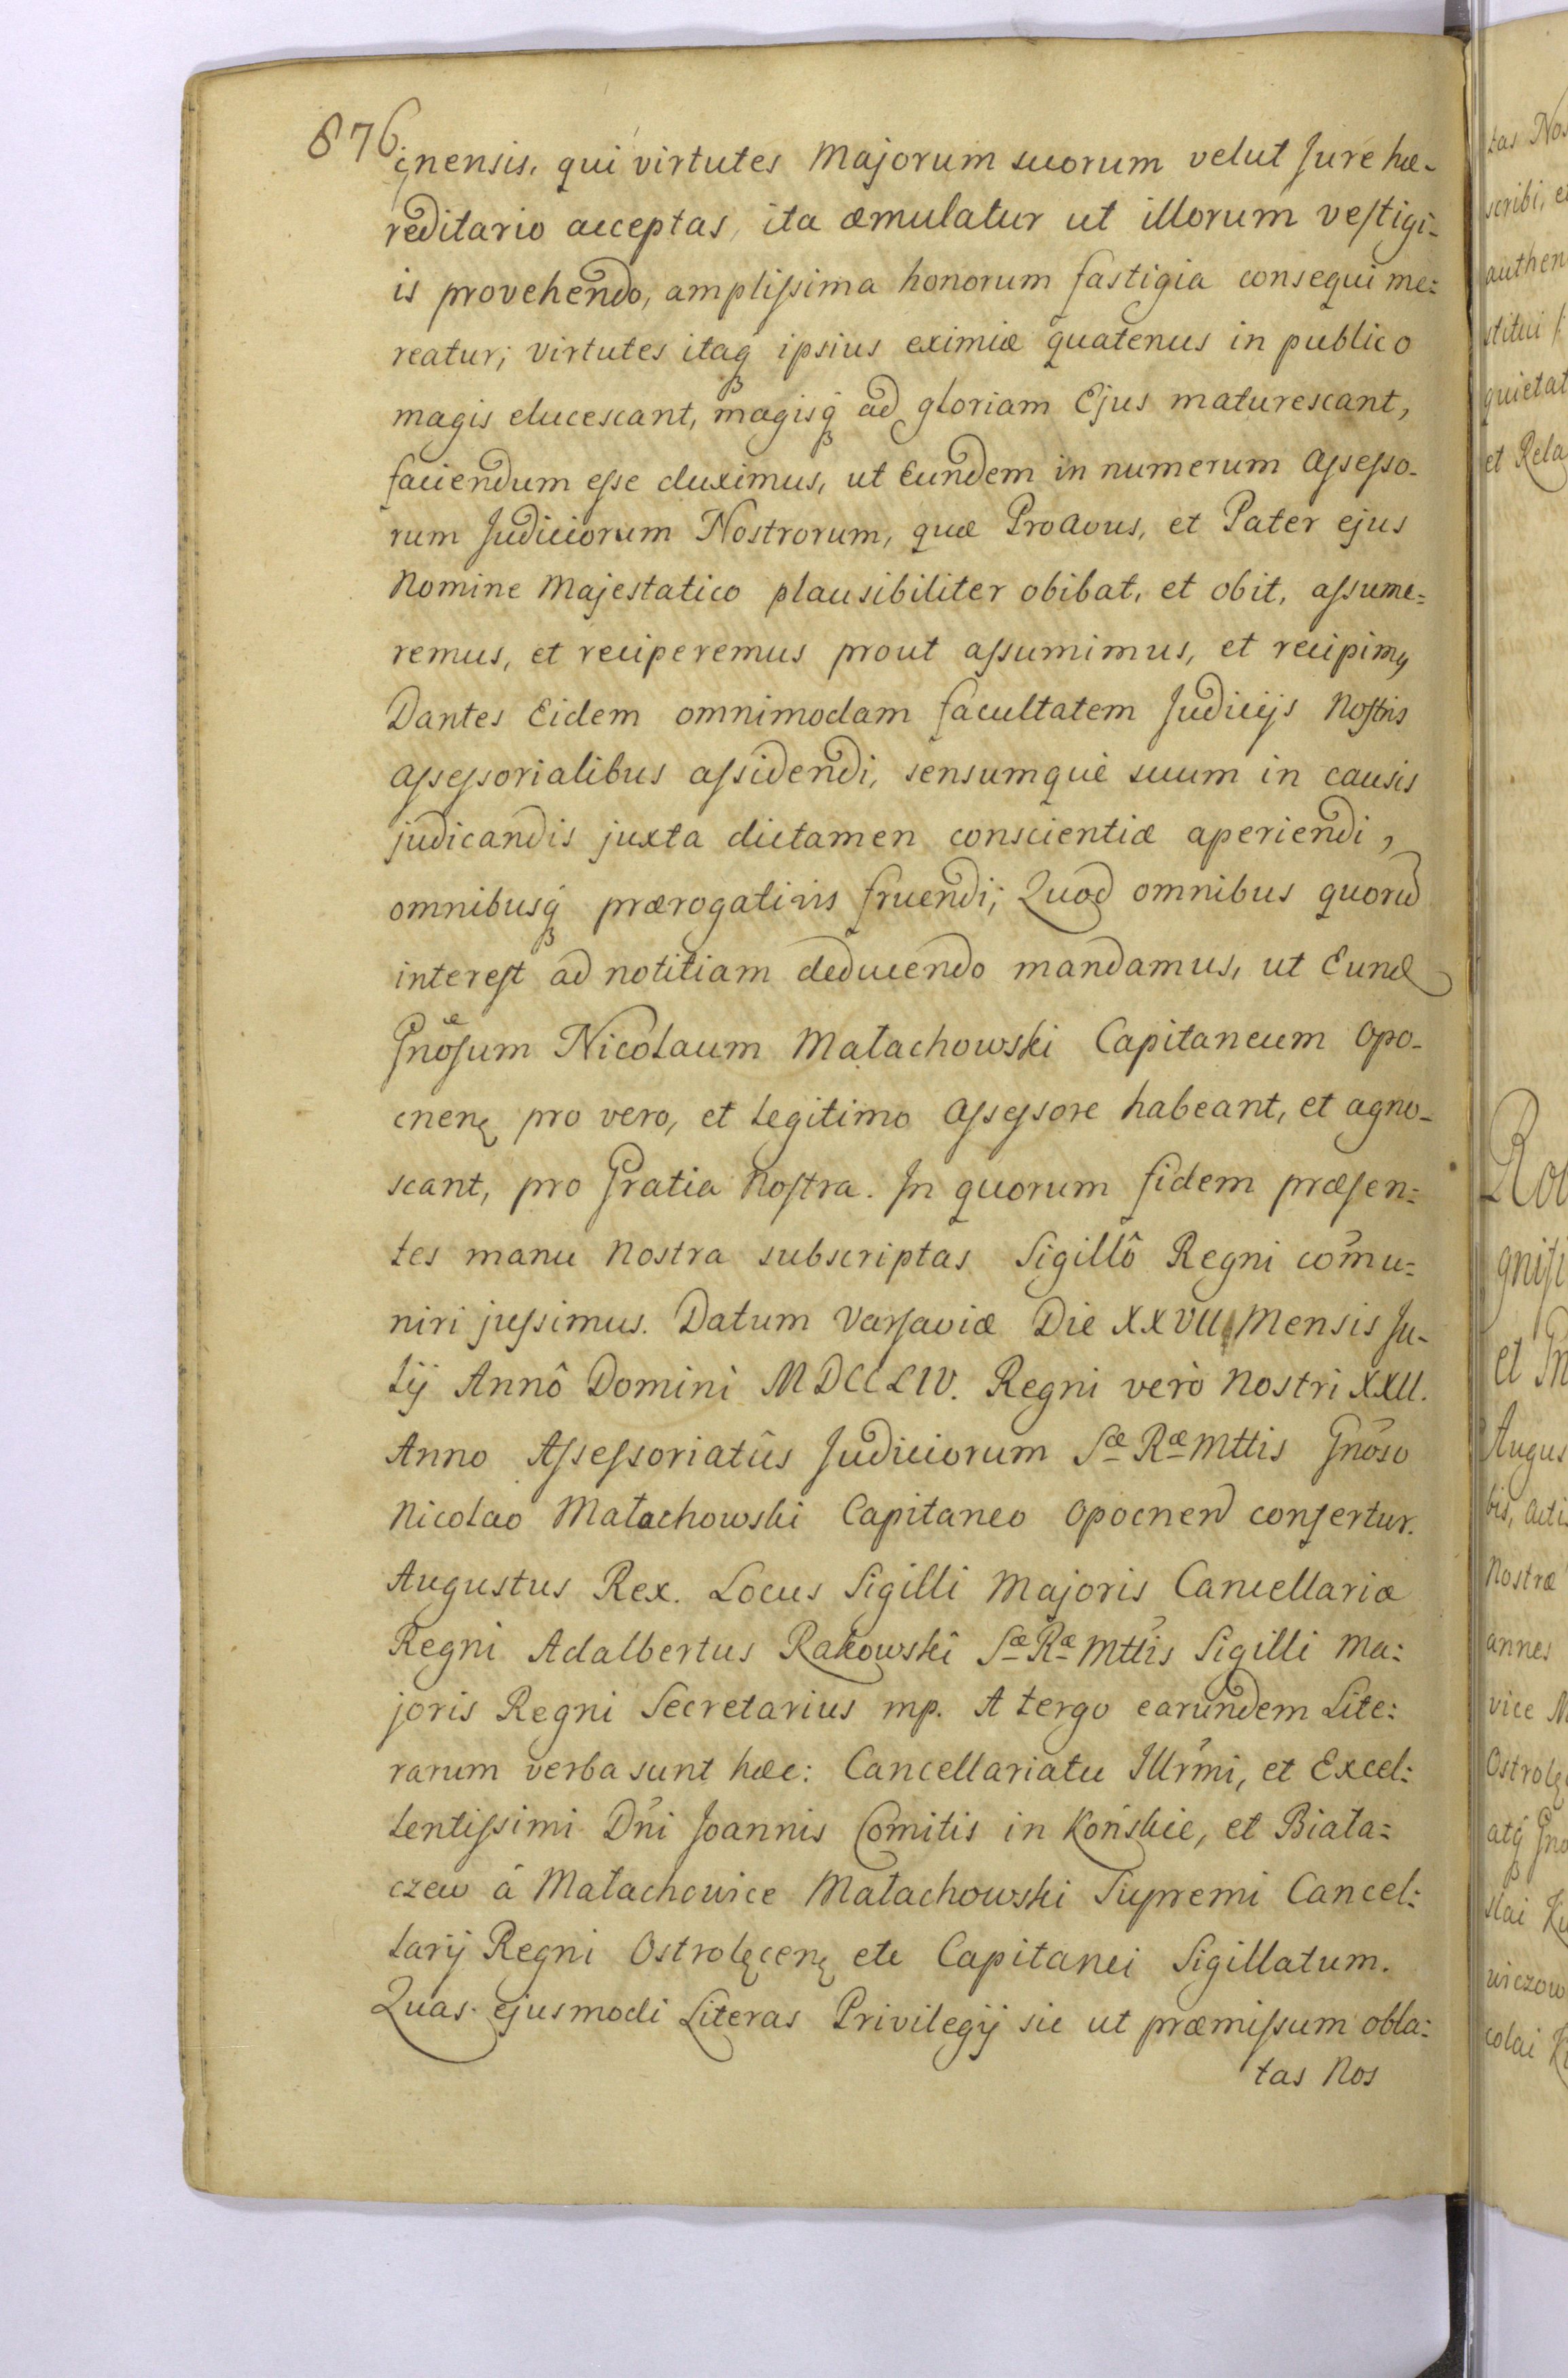 876
cnensis, qui virtutes Majorum suorum velut Jure hæ-
reditario acceptas, ita æmulatur ut illorum vestigi-
is provehendo, amplissima honorum fastigia consequi me:
reatur; virtutes itaq ipsius eximiæ quatenus in publico
magis elucescant, magisq ad gloriam Ejus maturescant,
faciendum esse duximus, ut Eundem in numerum Assesso-
rum Judiciorum Nostrorum, quæ Proavus, et Pater ejus
Nomine Majestatico plausibiliter obibat, et obit, assume=
remus, et reciperemus prout assumimus, et recipimꝰ
Dantes Eidem omnimodam facultatem Judicijs Nostris
Assessorialibus assidendi, sensumque suum in causis
judicandis juxta dictamen conscientiæ aperiendi,
omnibusq prærogativis fruendi; Quod omnibus quorũ
interest ad notitiam deducendo mandamus, ut Eund
Gnosum Nicolaum Małachowski Capitaneum Opo-
cnen pro vero, et legitimo Assessore habeant, et agno-
scant, pro Gratia Nostra. In quorum fidem præsen=
tes manu Nostra subscriptas Sigillô Regni com̃u=
niri jussimus. Datum Varsaviæ Die XXVII Mensis Ju-
lij Annô Domini MDCCLIV. Regni verò Nostri XXII.
Anno Assessoriatûs Judiciorum Sæ Ræ Mttis Gnõso
Nicolao Małachowski Capitaneo Opocnen confertur.
Augustus Rex. Locus Sigilli Majoris Cancellariæ
Regni Adalbertus Rakowski Sæ Ræ Mttis Sigilli Ma:
joris Regni Secretarius mp. A tergo earundem Lite:
rarum verba sunt hæc: Cancellariatu Illrmi, et Excel:
lentissimi Dni Joannis Comitis in Końskie, et Biała=
czew á Małachowice Małachowski Supremi Cancel:
larij Regni Ostrołęcen etc Capitanei Sigillatum.
Quas ejusmodi Literas Privilegij sic ut præmissum obla:
tas Nos
tas Nos
scribi, e
authen
stitui
quietat
et Rela
gnifi
Augus
bis, Acti
Nostræ
annes
vice
Ostrołę
atq Gno
slai
wiczow
colai